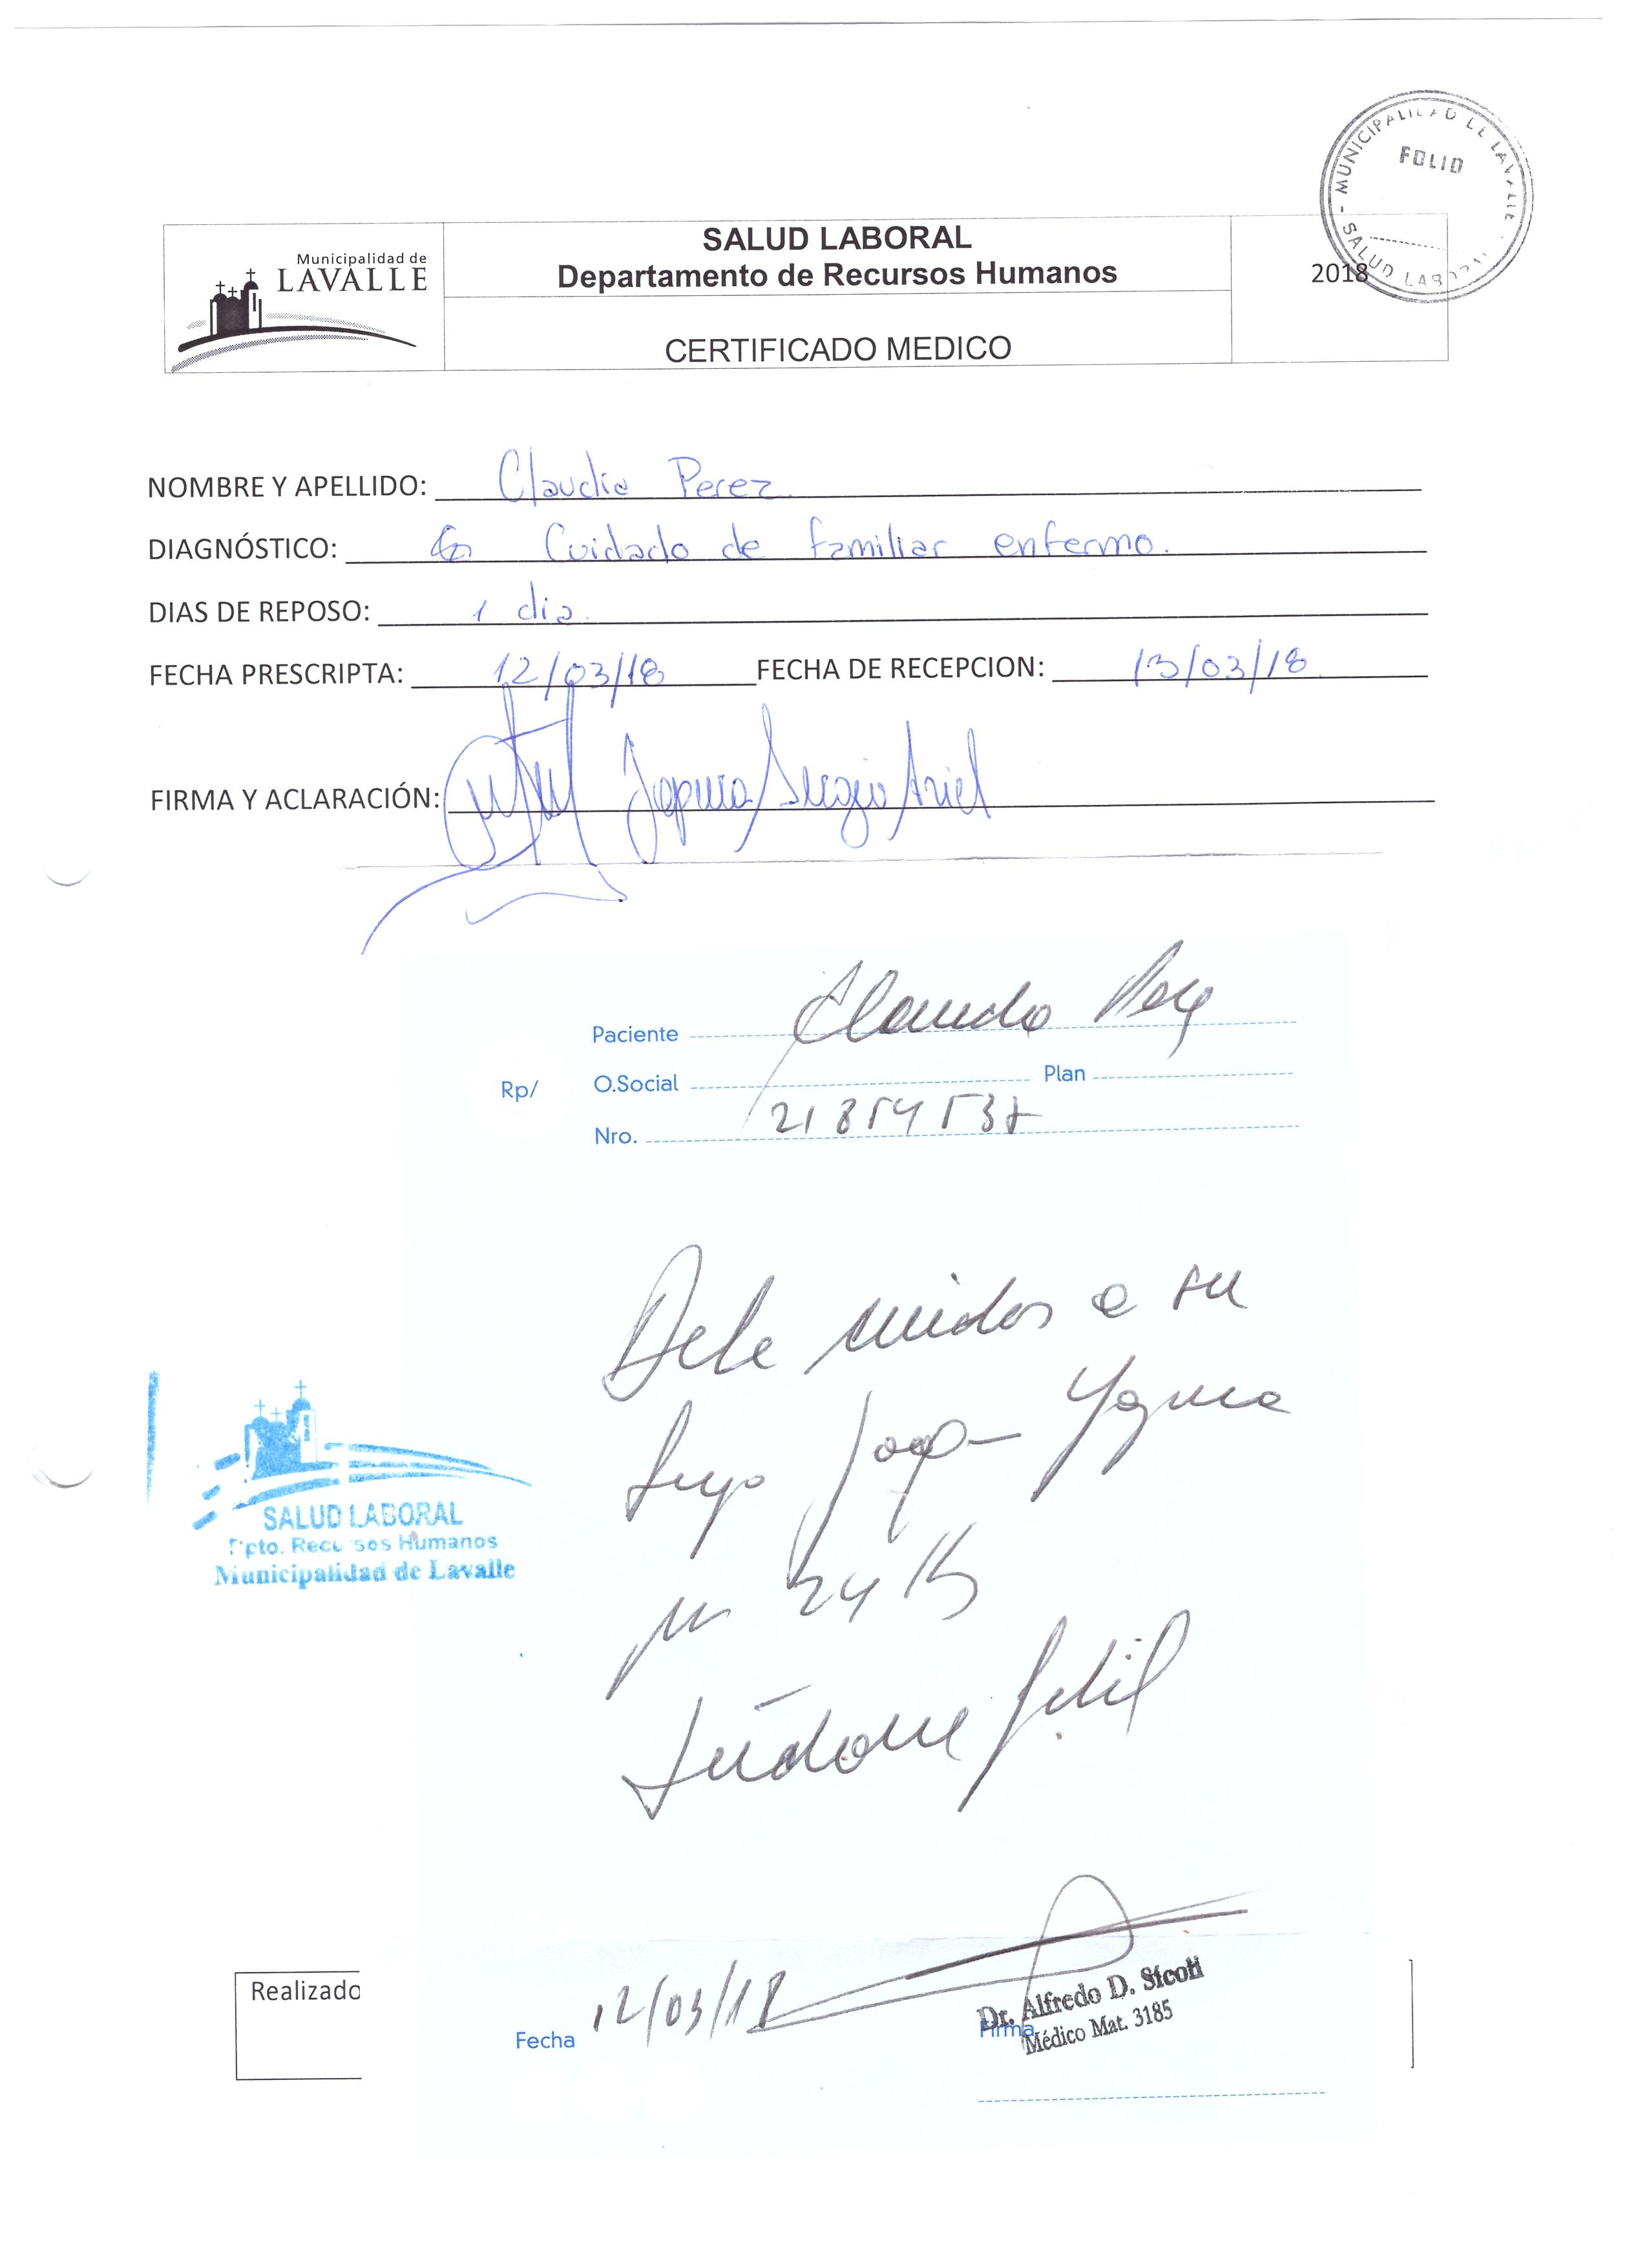 MUNICIPALIDAD DE LAVALLE - SALUD LABORAL
FOLIO
Municipalidad de
LAVALLE
SALUD LABORAL
Departamento de Recursos Humanos
2018
CERTIFICADO MEDICO
NOMBRE Y APELLIDO: Claudia Perez
DIAGNÓSTICO: Cuidado de familiar enfermo.
DIAS DE REPOSO: 1 dia.
FECHA PRESCRIPTA: 12/03/18 FECHA DE RECEPCION: 13/03/18
FIRMA Y ACLARACIÓN: Sergio Ariel
Paciente Claudia Perez
Rp/
O.Social Plan
Nro. 21854537
Debe cuidar a su
24 hs
febril
SALUD LABORAL
Dpto. Recursos Humanos
Municipalidad de Lavalle
Realizado
Fecha 12/03/18
Firma
Dr. Alfredo D. Sicoli
Médico Mat. 3185